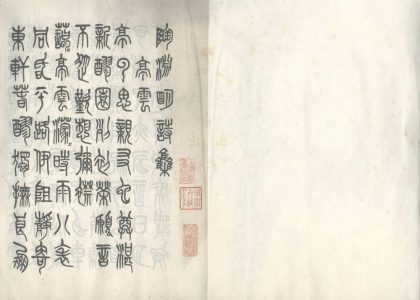 陶淵明詩集
亭雲
亭雲思親友也尊湛
新醪園列初榮願言
不從歎想彌襟
藹〻亭雲濛〻時雨八表
同昏平路伊阻靜寄
東軒春醪獨撫良朋